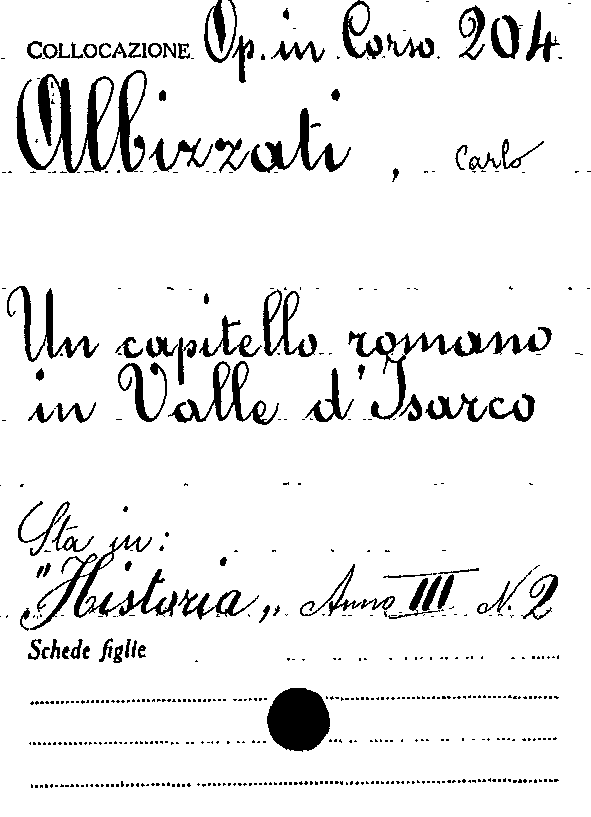 COLLOCAZIONE Op. in Corso 204
Albizzati, Carlo
Un capitello romano
in Valle d'Isarco
Sta in:
"Historia„ Anno III N. 2
Schede figlie